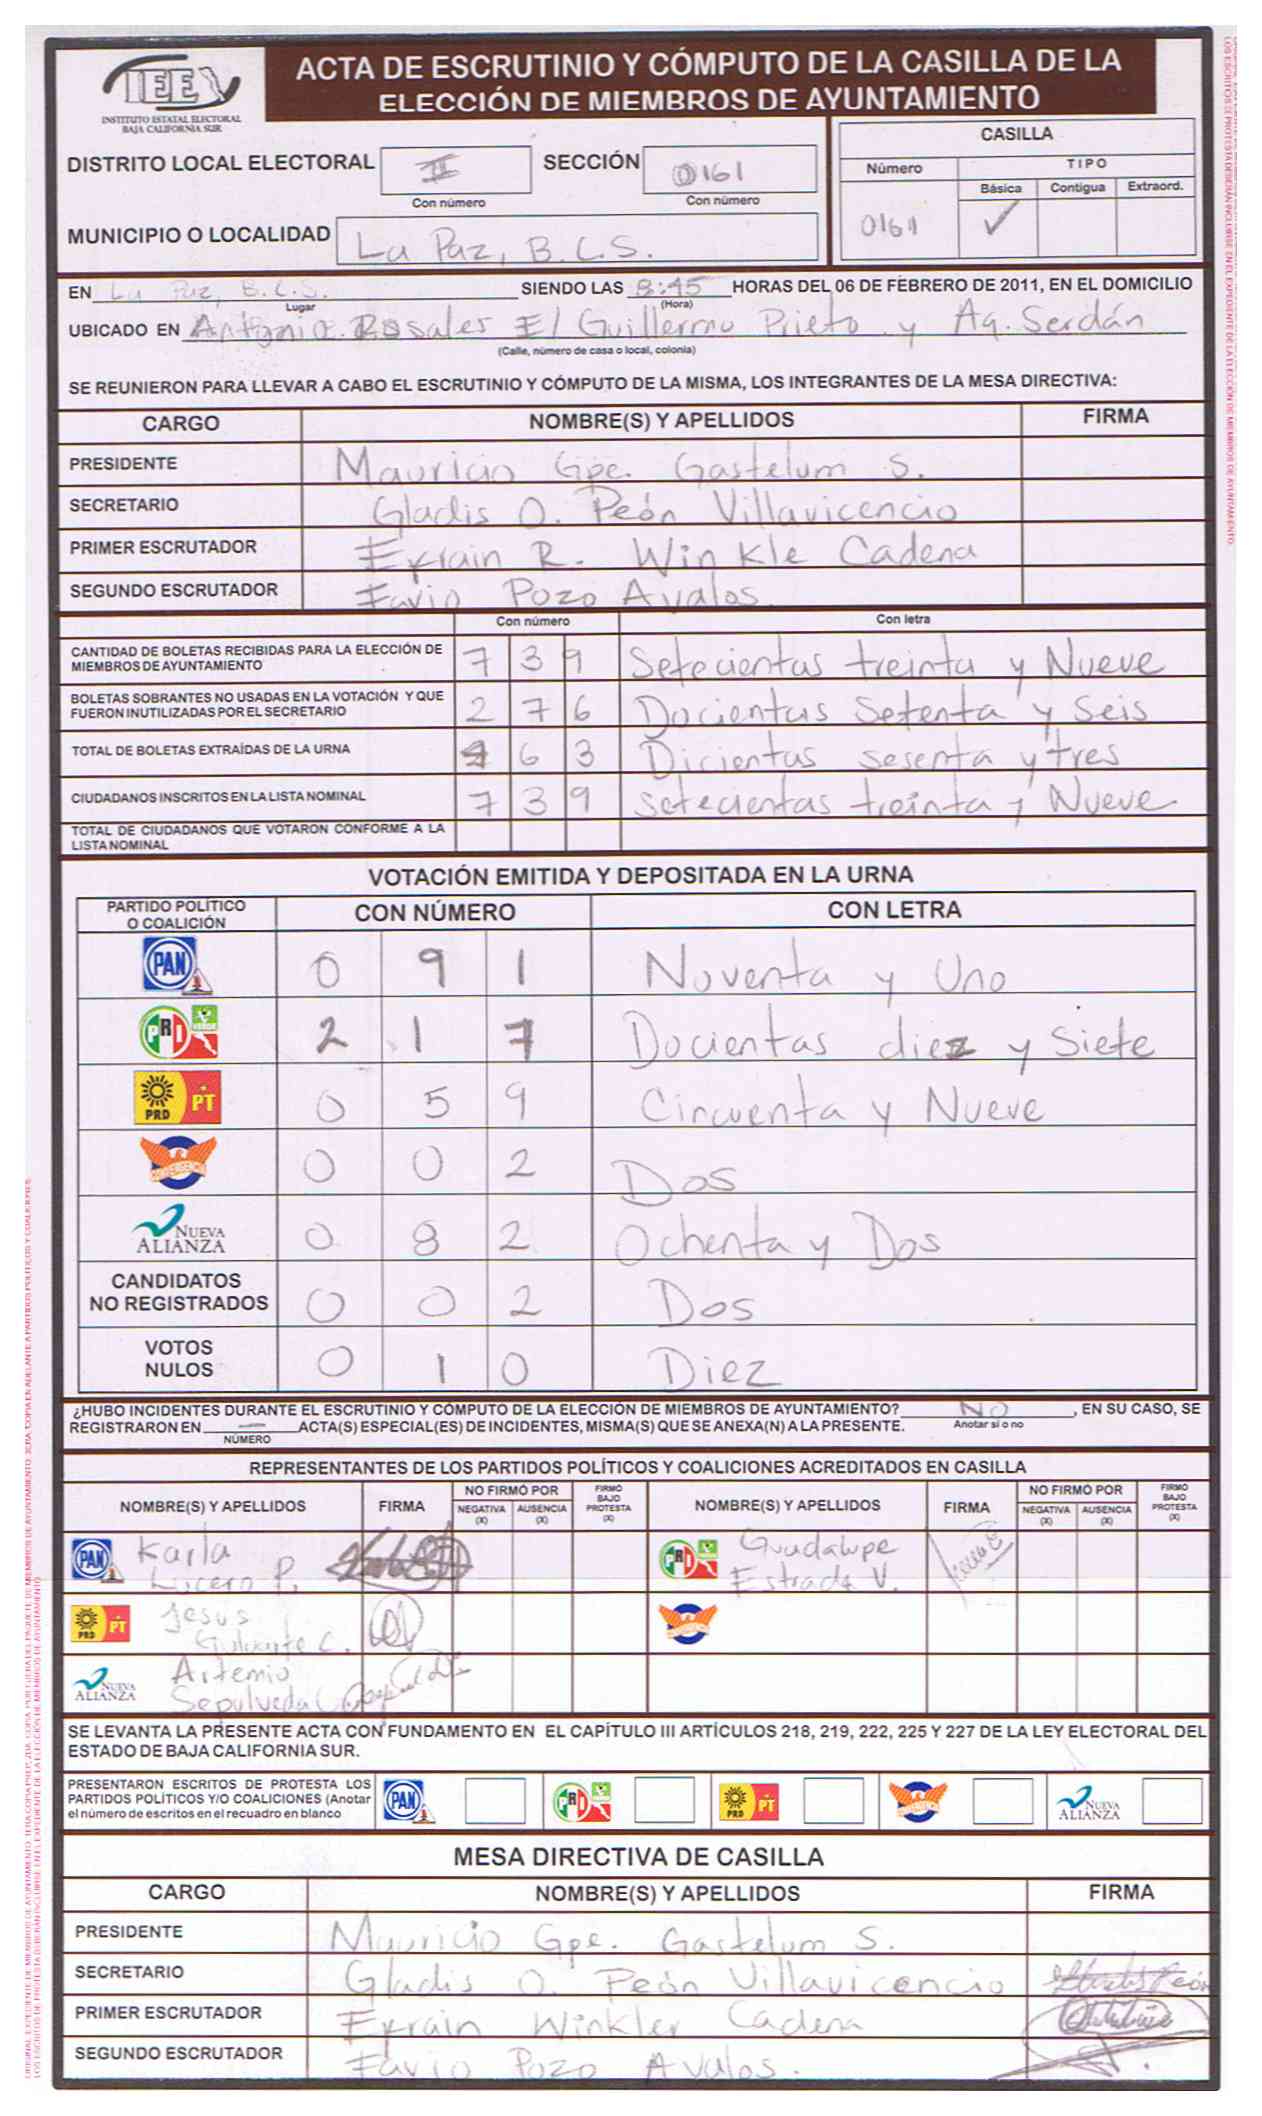 IEE
INSTITUTO ESTATAL ELECTORAL
BAJA CALIFORNIA SUR
ACTA DE ESCRUTINIO Y CÓMPUTO DE LA CASILLA DE LA
ELECCIÓN DE MIEMBROS DE AYUNTAMIENTO
DISTRITO LOCAL ELECTORAL II SECCIÓN 0161
Con número Con número
MUNICIPIO O LOCALIDAD La Paz, B.C.S.
CASILLA
Número TIPO
Básica Contigua Extraord.
0161 ✓
EN La Paz, B.C.S. SIENDO LAS 8:45 HORAS DEL 06 DE FEBRERO DE 2011, EN EL DOMICILIO
Lugar (Hora)
UBICADO EN Antonio Rosales E/ Guillermo Prieto y Aq. Serdán
(Calle, número de casa o local, colonia)
SE REUNIERON PARA LLEVAR A CABO EL ESCRUTINIO Y CÓMPUTO DE LA MISMA, LOS INTEGRANTES DE LA MESA DIRECTIVA:
CARGO NOMBRE(S) Y APELLIDOS FIRMA
PRESIDENTE Mauricio Gpe. Gastelum S.
SECRETARIO Gladis O. Peón Villavicencio
PRIMER ESCRUTADOR Efrain R. Winkle Cadena
SEGUNDO ESCRUTADOR Favio Pozo Avalos.
Con número Con letra
CANTIDAD DE BOLETAS RECIBIDAS PARA LA ELECCIÓN DE
MIEMBROS DE AYUNTAMIENTO 7 3 9 Setecientas treinta y Nueve
BOLETAS SOBRANTES NO USADAS EN LA VOTACIÓN Y QUE
FUERON INUTILIZADAS POR EL SECRETARIO 2 7 6 Docientas Setenta y Seis
TOTAL DE BOLETAS EXTRAÍDAS DE LA URNA 4 6 3 Dicientas sesenta y tres
CIUDADANOS INSCRITOS EN LA LISTA NOMINAL 7 3 9 Setecientas treinta y Nueve
TOTAL DE CIUDADANOS QUE VOTARON CONFORME A LA
LISTA NOMINAL
VOTACIÓN EMITIDA Y DEPOSITADA EN LA URNA
PARTIDO POLÍTICO
O COALICIÓN CON NÚMERO CON LETRA
PAN 0 9 1 Noventa y Uno
PRI VERDE 2 1 7 Docientas diez y Siete
PRD PT 0 5 9 Cincuenta y Nueve
CONVERGENCIA 0 0 2 Dos
NUEVA ALIANZA 0 8 2 Ochenta y Dos
CANDIDATOS
NO REGISTRADOS 0 0 2 Dos
VOTOS
NULOS 0 1 0 Diez
¿HUBO INCIDENTES DURANTE EL ESCRUTINIO Y CÓMPUTO DE LA ELECCIÓN DE MIEMBROS DE AYUNTAMIENTO? NO , EN SU CASO, SE
Anotar sí o no
REGISTRARON EN ACTA(S) ESPECIAL(ES) DE INCIDENTES, MISMA(S) QUE SE ANEXA(N) A LA PRESENTE.
NÚMERO
REPRESENTANTES DE LOS PARTIDOS POLÍTICOS Y COALICIONES ACREDITADOS EN CASILLA
NOMBRE(S) Y APELLIDOS FIRMA NO FIRMÓ POR NEGATIVA (X) AUSENCIA (X) FIRMÓ BAJO PROTESTA (X) NOMBRE(S) Y APELLIDOS FIRMA NO FIRMÓ POR NEGATIVA (X) AUSENCIA (X) FIRMÓ BAJO PROTESTA (X)
PAN Karla PRI Guadalupe
Lucero P. Estrada V.
PRD PT Jesus
C.
NUEVA ALIANZA Artemio
Sepulveda
SE LEVANTA LA PRESENTE ACTA CON FUNDAMENTO EN EL CAPÍTULO III ARTÍCULOS 218, 219, 222, 225 Y 227 DE LA LEY ELECTORAL DEL
ESTADO DE BAJA CALIFORNIA SUR.
PRESENTARON ESCRITOS DE PROTESTA LOS
PARTIDOS POLÍTICOS Y/O COALICIONES (Anotar
el número de escritos en el recuadro en blanco
PAN PRI PRD PT NUEVA ALIANZA
MESA DIRECTIVA DE CASILLA
CARGO NOMBRE(S) Y APELLIDOS FIRMA
PRESIDENTE Mauricio Gpe. Gastelum S.
SECRETARIO Gladis O. Peón Villavicencio
PRIMER ESCRUTADOR Efrain Winkler Cadena
SEGUNDO ESCRUTADOR Favio Pozo Avalos.